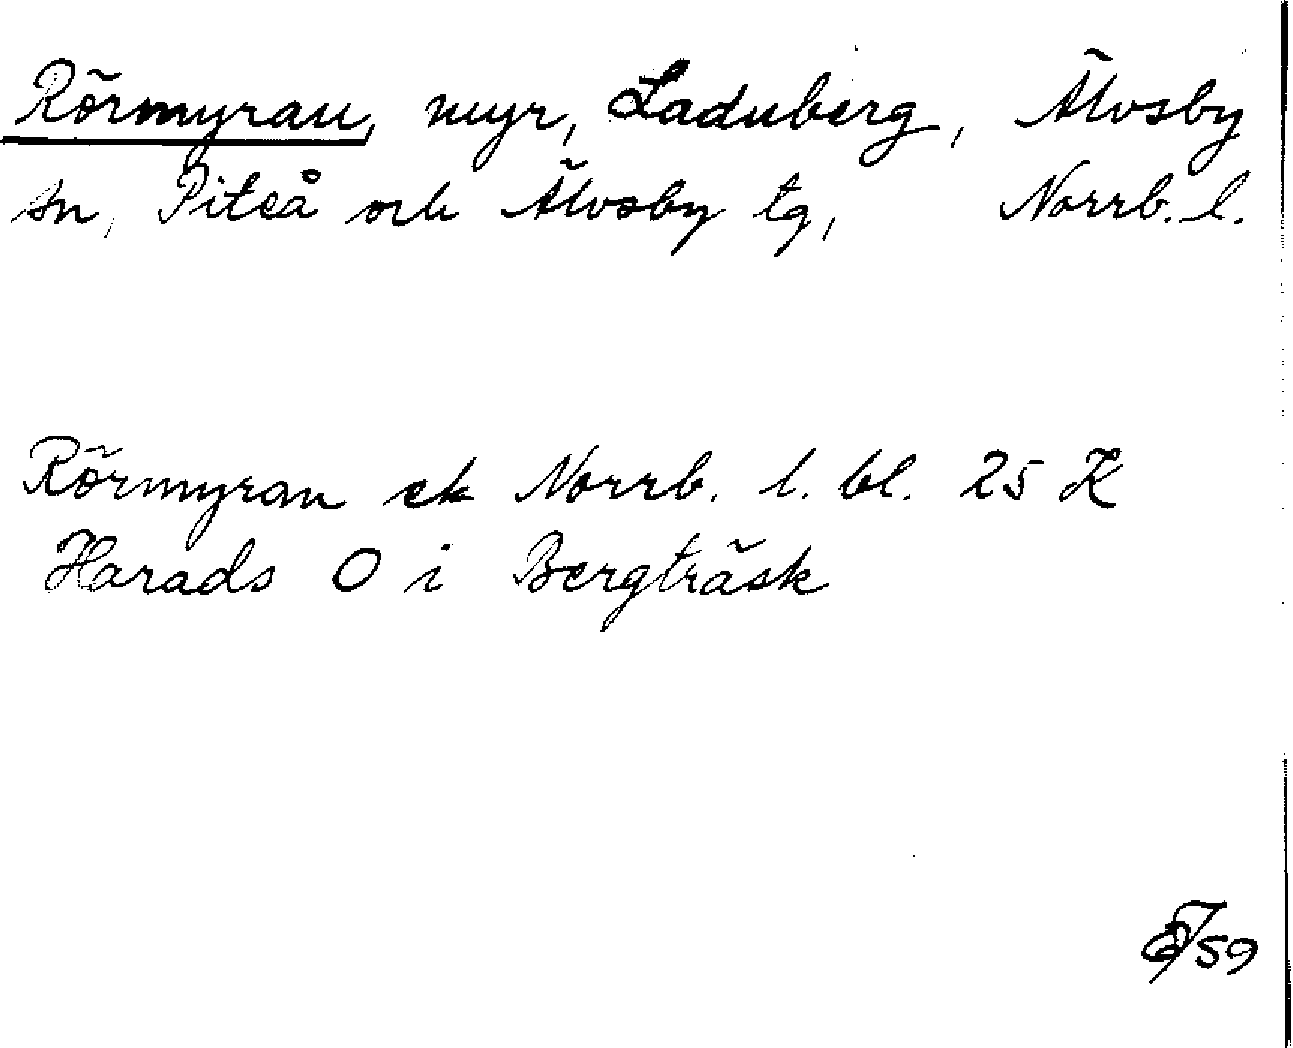 Rörmyran, myr, Laduberg, Älvsby
sn, Piteå och Älvsby tg, Norrb. l.
Rörmyran ek Norrb. l. bl. 25 K
Harads O i Bergträsk
/59